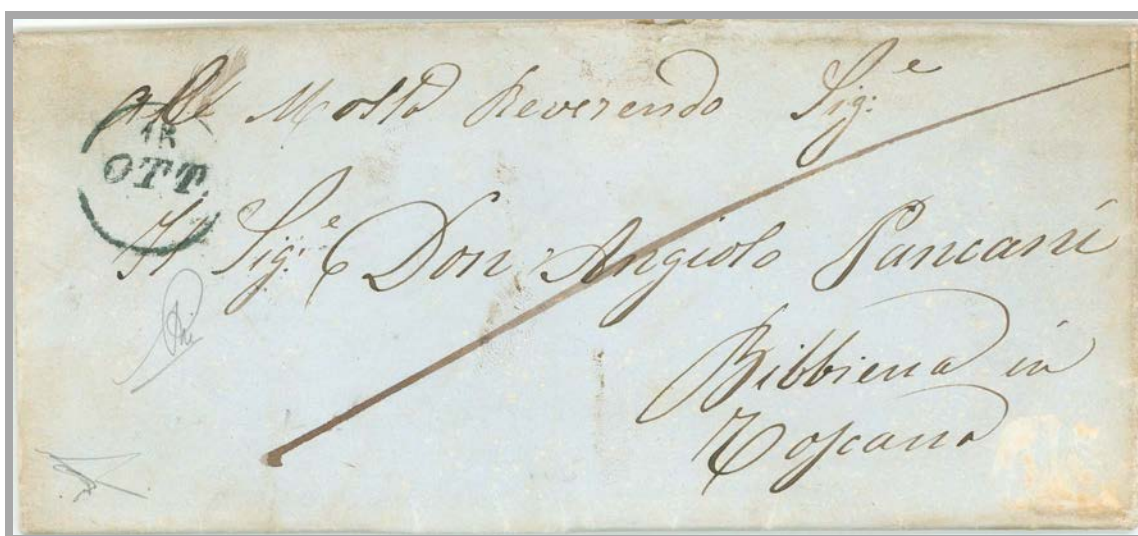 All Molto Reverendo Sig:e
18
OTT.
Il Sig:e Don Angiolo Pancani
Bibbiena in
Toscana